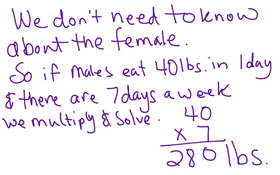 We don't need to know
about the female.
So if males eat 40lbs. in 1day
& there are 7days a week
we multiply & solve. 40
x 7
280 lbs.